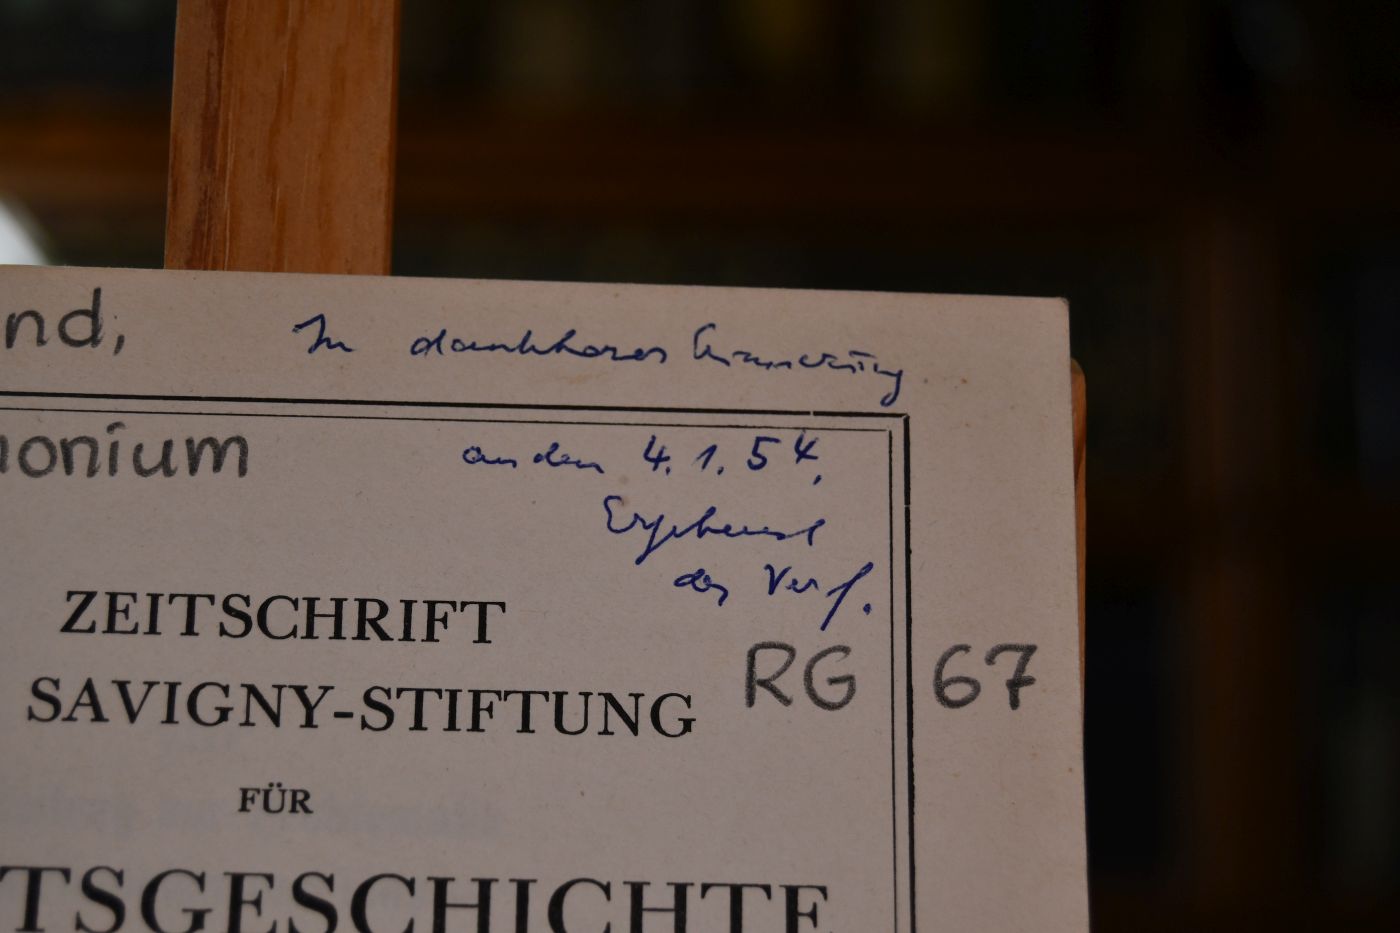 nd,
In dankbarer Erinnerung
onium
an den 4. 1. 54.
Ergebenst
der Verf.
ZEITSCHRIFT
SAVIGNY-STIFTUNG
RG 67
FÜR
TSGESCHICHTE